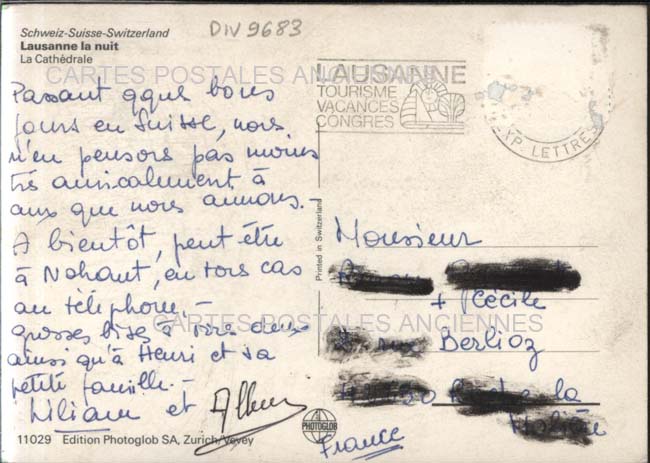 DIV 9683
Schweiz-Suisse-Switzerland
Lausanne la nuit
La Cathédrale
CARTES POSTALES ANCIENNES
LAUSANNE
TOURISME
VACANCES
CONGRES
EXP. LETTRES
Passant qques bons
jours en Suisse, nous
n'en pensons pas moins
très amicalement à
ceux que nous aimons.-
A bientôt, peut être
à Nohant, en tous cas
au téléphone.-
grosses bises à vous deux
ainsi qu'à Henri et sa
petite famille.-
Liliane et Albert
Printed in Switzerland
Monsieur
+ Cécile
CARTES POSTALES ANCIENNES
rue Berlioz
de la
France
PHOTOGLOB
11029 Edition Photoglob SA, Zurich/Vevey